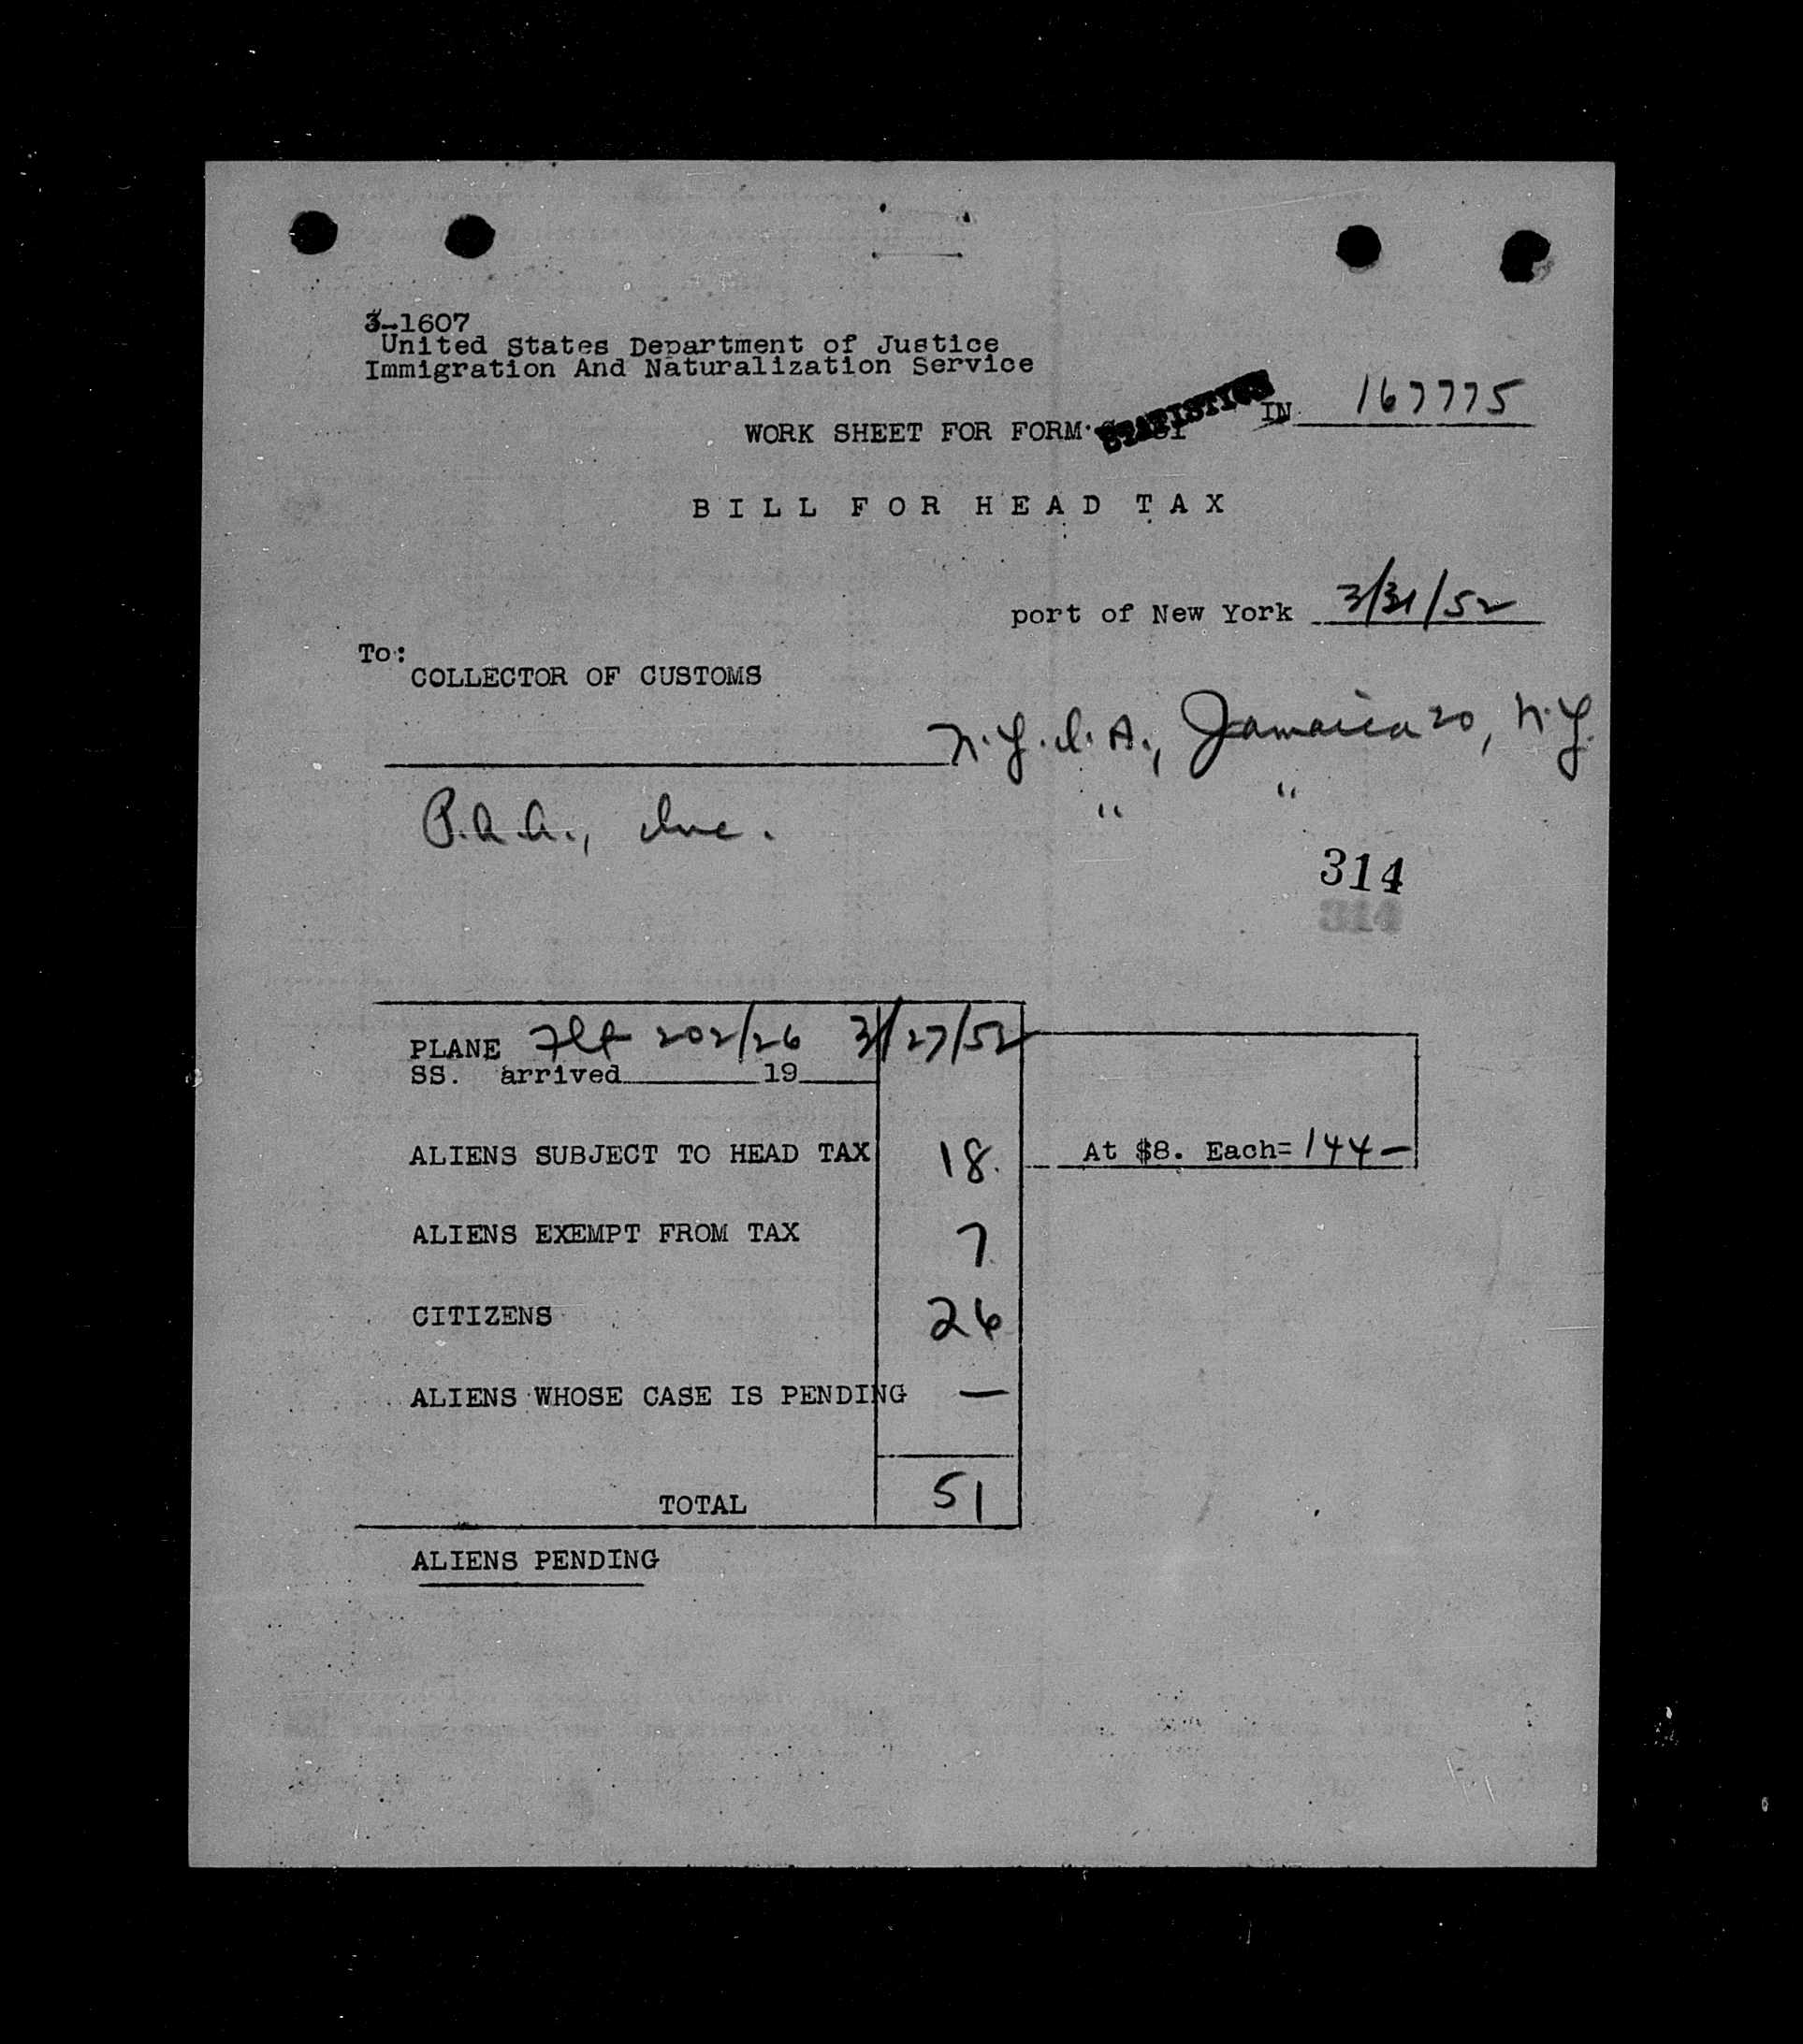 3-1607
United States Department of Justice
Immigration And Naturalization Service
STATISTICS
IN 167775
WORK SHEET FOR FORM
BILL FOR HEAD TAX
port of New York 3/31/52
To:
COLLECTOR OF CUSTOMS
N.Y.I.A., Jamaica 20, N.Y.
P.A.A., Inc. " "
314
314
PLANE Flt 202/26 3/27/52
SS. arrived 19
ALIENS SUBJECT TO HEAD TAX 18 At $8. Each= 144-
ALIENS EXEMPT FROM TAX 7
CITIZENS 26
ALIENS WHOSE CASE IS PENDING —
TOTAL 51
ALIENS PENDING